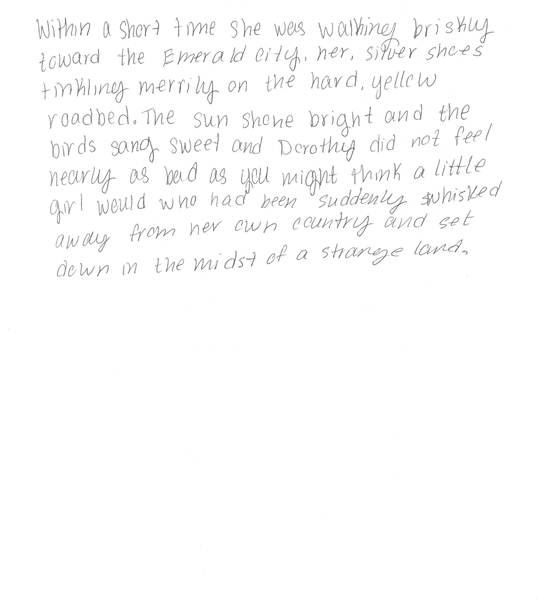 Within a short time she was walking briskly
toward the Emerald City, her, silver shoes
tinkling merrily on the hard, yellow
roadbed. The sun shone bright and the
birds sang sweet and Dorothy did not feel
nearly as bad as you might think a little
girl would who had been suddenly whisked
away from her own country and set
down in the midst of a strange land.